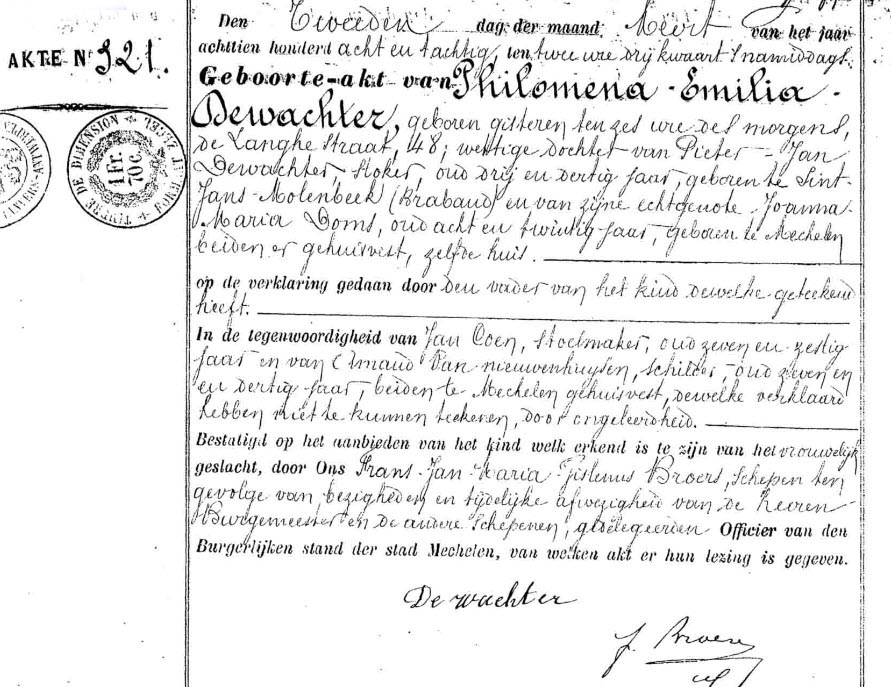 Den Tweeden dag der maand Meert van het jaar
achttien honderd acht en tachtig, ten twee ure drij kwaart 's namiddags,
AKTE N° 321.
Geboorte-akt van Philomena-Emilia-
Dewachter, geboren gisteren ten zes ure des morgens,
de Langhe straat, 48; wettige dochter van Pieter-Jan
Dewachter, stoker, oud drij en dertig jaar, geboren te Sint-
Jans-Molenbeek (Braband) en van zijne echtgenote Joanna-
Maria Doms, oud acht en twintig jaar, geboren te Mechelen
beiden er gehuisvest, zelfde huis.
TIMBRE DE DIMENSION
1 Fr.
70 c.
op de verklaring gedaan door den vader van het kind dewelke geteekend
heeft.
In de tegenwoordigheid van Jan Coen, stoelmaker, oud zeven en zestig
jaar en van Van nieuwenhuysen, schilder, oud zeven en
en dertig jaar, beiden te Mechelen gehuisvest, dewelke verklaard
hebben niet te kunnen teekenen, door ongeleerdheid.
Bestatigd op het aanbieden van het kind welk erkend is te zijn van het vrouwelijk
geslacht, door Ons Frans-Jan-Maria-Gislenus Broers, Schepen ten
gevolge van bezigheden en tijdelijke afwezigheid van de heeren
Burgemeester en de andere Schepenen, gedelegeerden Officier van den
Burgerlijken stand der stad Mechelen, van welken akt er hun lezing is gegeven.
De wachter
J. Broers